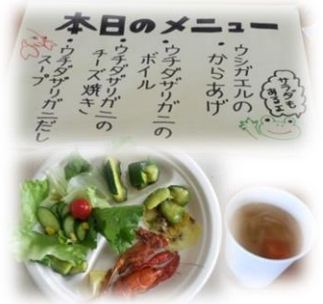 本日のメニュー
・ウシガエルの
からあげ
・ウチダザリガニの
ボイル
・ウチダザリガニの
チーズ焼き
・ウチダザリガニだし
スープ
サラダも
あるよ